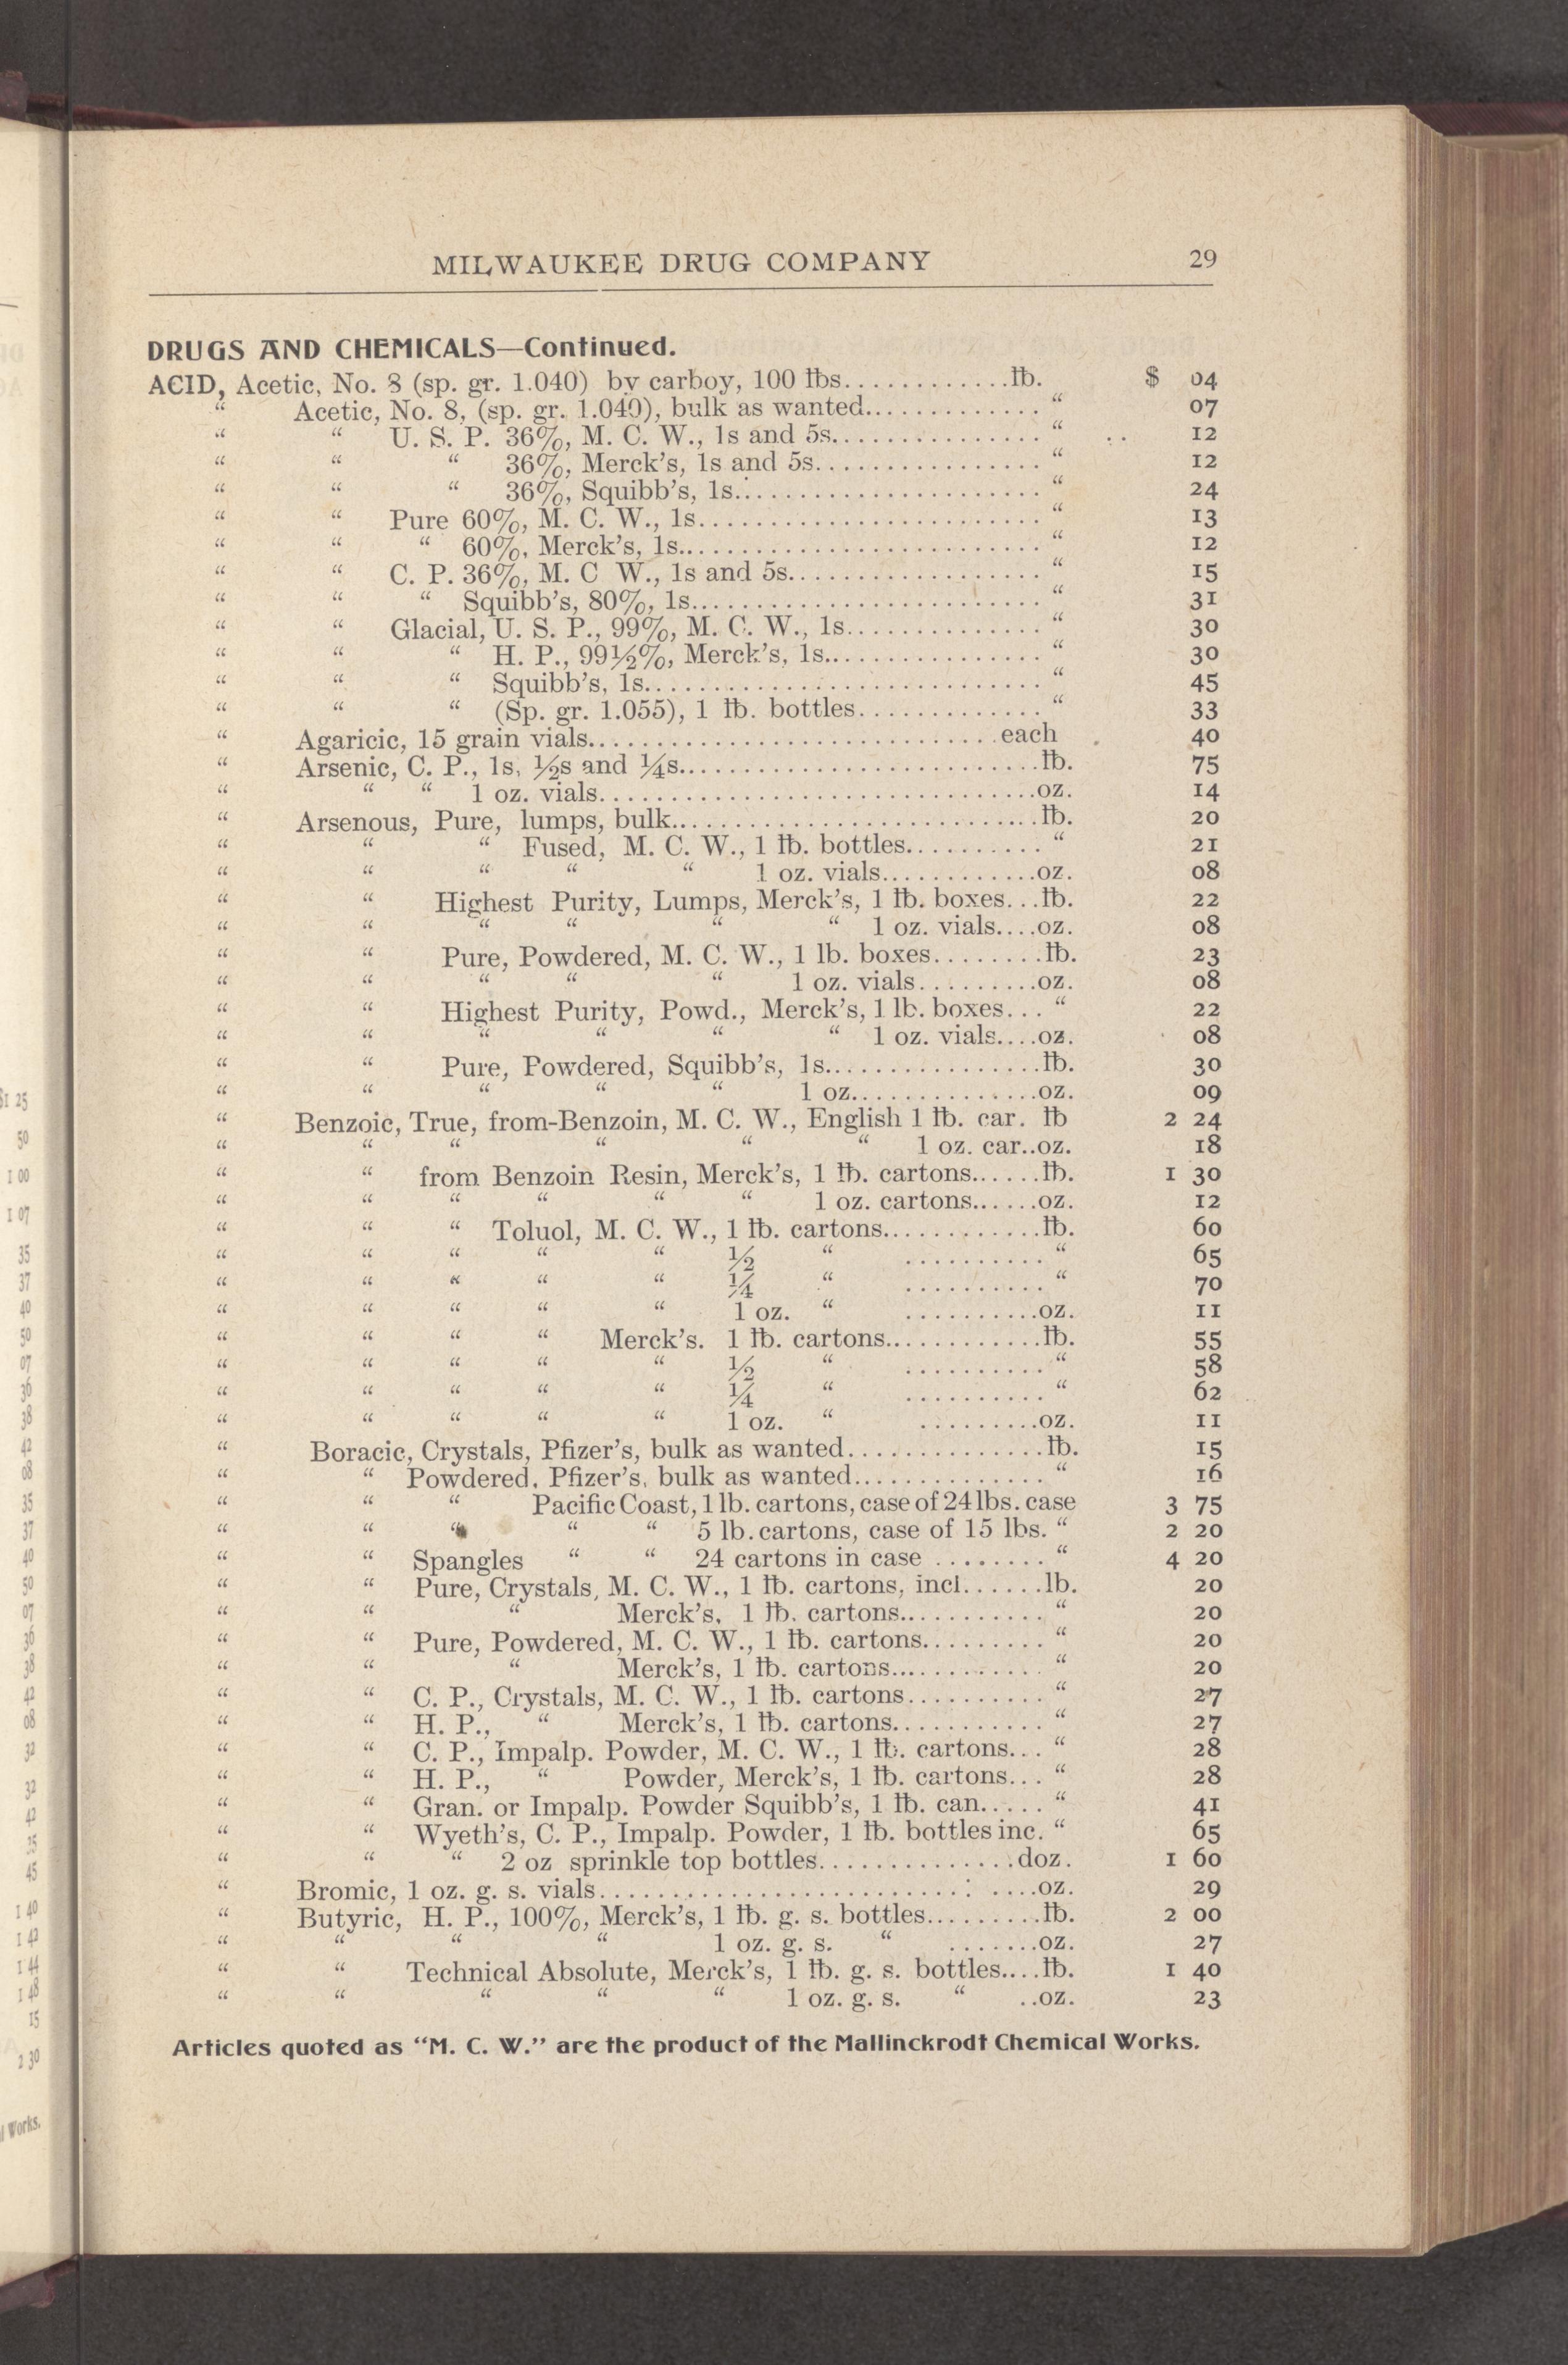 MILWAUKEE DRUG COMPANY 29
DRUGS AND CHEMICALS—Continued.
ACID, Acetic, No. 8 (sp. gr. 1.040) by carboy, 100 lbs............lb. $ 04
“ Acetic, No. 8, (sp. gr. 1.040), bulk as wanted.............. “ 07
“ “ U. S. P. 36%, M. C. W., 1s and 5s................ “ .. 12
“ “ “ 36%, Merck's, 1s and 5s................ “ 12
“ “ “ 36%, Squibb's, 1s...................... “ 24
“ “ Pure 60%, M. C. W., 1s........................ “ 13
“ “ “ 60%, Merck's, 1s.......................... “ 12
“ “ C. P. 36%, M. C W., 1s and 5s.................. “ 15
“ “ “ Squibb's, 80%, 1s......................... “ 31
“ “ Glacial, U. S. P., 99%, M. C. W., 1s.............. “ 30
“ “ “ H. P., 99½%, Merck's, 1s................ “ 30
“ “ “ Squibb's, 1s............................ “ 45
“ “ “ (Sp. gr. 1.055), 1 lb. bottles............. “ 33
“ Agaricic, 15 grain vials.............................each 40
“ Arsenic, C. P., 1s, ½s and ¼s..........................lb. 75
“ “ “ 1 oz. vials...............................oz. 14
“ Arsenous, Pure, lumps, bulk..........................lb. 20
“ “ “ Fused, M. C. W., 1 lb. bottles.......... “ 21
“ “ “ “ “ 1 oz. vials............oz. 08
“ “ Highest Purity, Lumps, Merck's, 1 lb. boxes...lb. 22
“ “ “ “ “ “ 1 oz. vials....oz. 08
“ “ Pure, Powdered, M. C. W., 1 lb. boxes........lb. 23
“ “ “ “ “ 1 oz. vials.........oz. 08
“ “ Highest Purity, Powd., Merck's, 1 lb. boxes... “ 22
“ “ “ “ “ “ 1 oz. vials....oz. 08
“ “ Pure, Powdered, Squibb's, 1s................lb. 30
“ “ “ “ “ 1 oz..............oz. 09
“ Benzoic, True, from-Benzoin, M. C. W., English 1 lb. car. lb 2 24
“ “ “ “ “ “ 1 oz. car..oz. 18
“ “ from Benzoin Resin, Merck's, 1 lb. cartons......lb. 1 30
“ “ “ “ “ “ 1 oz. cartons......oz. 12
“ “ “ Toluol, M. C. W., 1 lb. cartons............lb. 60
“ “ “ “ “ ½ “ .......... “ 65
“ “ “ “ “ ¼ “ .......... “ 70
“ “ “ “ “ 1 oz. “ ..........oz. 11
“ “ “ “ Merck's. 1 lb. cartons............lb. 55
“ “ “ “ “ ½ “ .......... “ 58
“ “ “ “ “ ¼ “ .......... “ 62
“ “ “ “ “ 1 oz. “ .........oz. 11
“ Boracic, Crystals, Pfizer's, bulk as wanted..............lb. 15
“ “ Powdered, Pfizer's, bulk as wanted.............. “ 16
“ “ “ Pacific Coast, 1 lb. cartons, case of 24 lbs. case 3 75
“ “ “ “ “ 5 lb. cartons, case of 15 lbs. “ 2 20
“ “ Spangles “ “ 24 cartons in case ........ “ 4 20
“ “ Pure, Crystals, M. C. W., 1 lb. cartons, incl......lb. 20
“ “ “ Merck's, 1 lb. cartons........... “ 20
“ “ Pure, Powdered, M. C. W., 1 lb. cartons......... “ 20
“ “ “ Merck's, 1 lb. cartons............ “ 20
“ “ C. P., Crystals, M. C. W., 1 lb. cartons.......... “ 27
“ “ H. P., “ Merck's, 1 lb. cartons........... “ 27
“ “ C. P., Impalp. Powder, M. C. W., 1 lb. cartons... “ 28
“ “ H. P., “ Powder, Merck's, 1 lb. cartons... “ 28
“ “ Gran. or Impalp. Powder Squibb's, 1 lb. can..... “ 41
“ “ Wyeth's, C. P., Impalp. Powder, 1 lb. bottles inc. “ 65
“ “ “ 2 oz sprinkle top bottles..............doz. 1 60
“ Bromic, 1 oz. g. s. vials..............................oz. 29
“ Butyric, H. P., 100%, Merck's, 1 lb. g. s. bottles.........lb. 2 00
“ “ “ “ 1 oz. g. s. “ .......oz. 27
“ “ Technical Absolute, Merck's, 1 lb. g. s. bottles....lb. 1 40
“ “ “ “ “ 1 oz. g. s. “ ..oz. 23
Articles quoted as “M. C. W.” are the product of the Mallinckrodt Chemical Works.